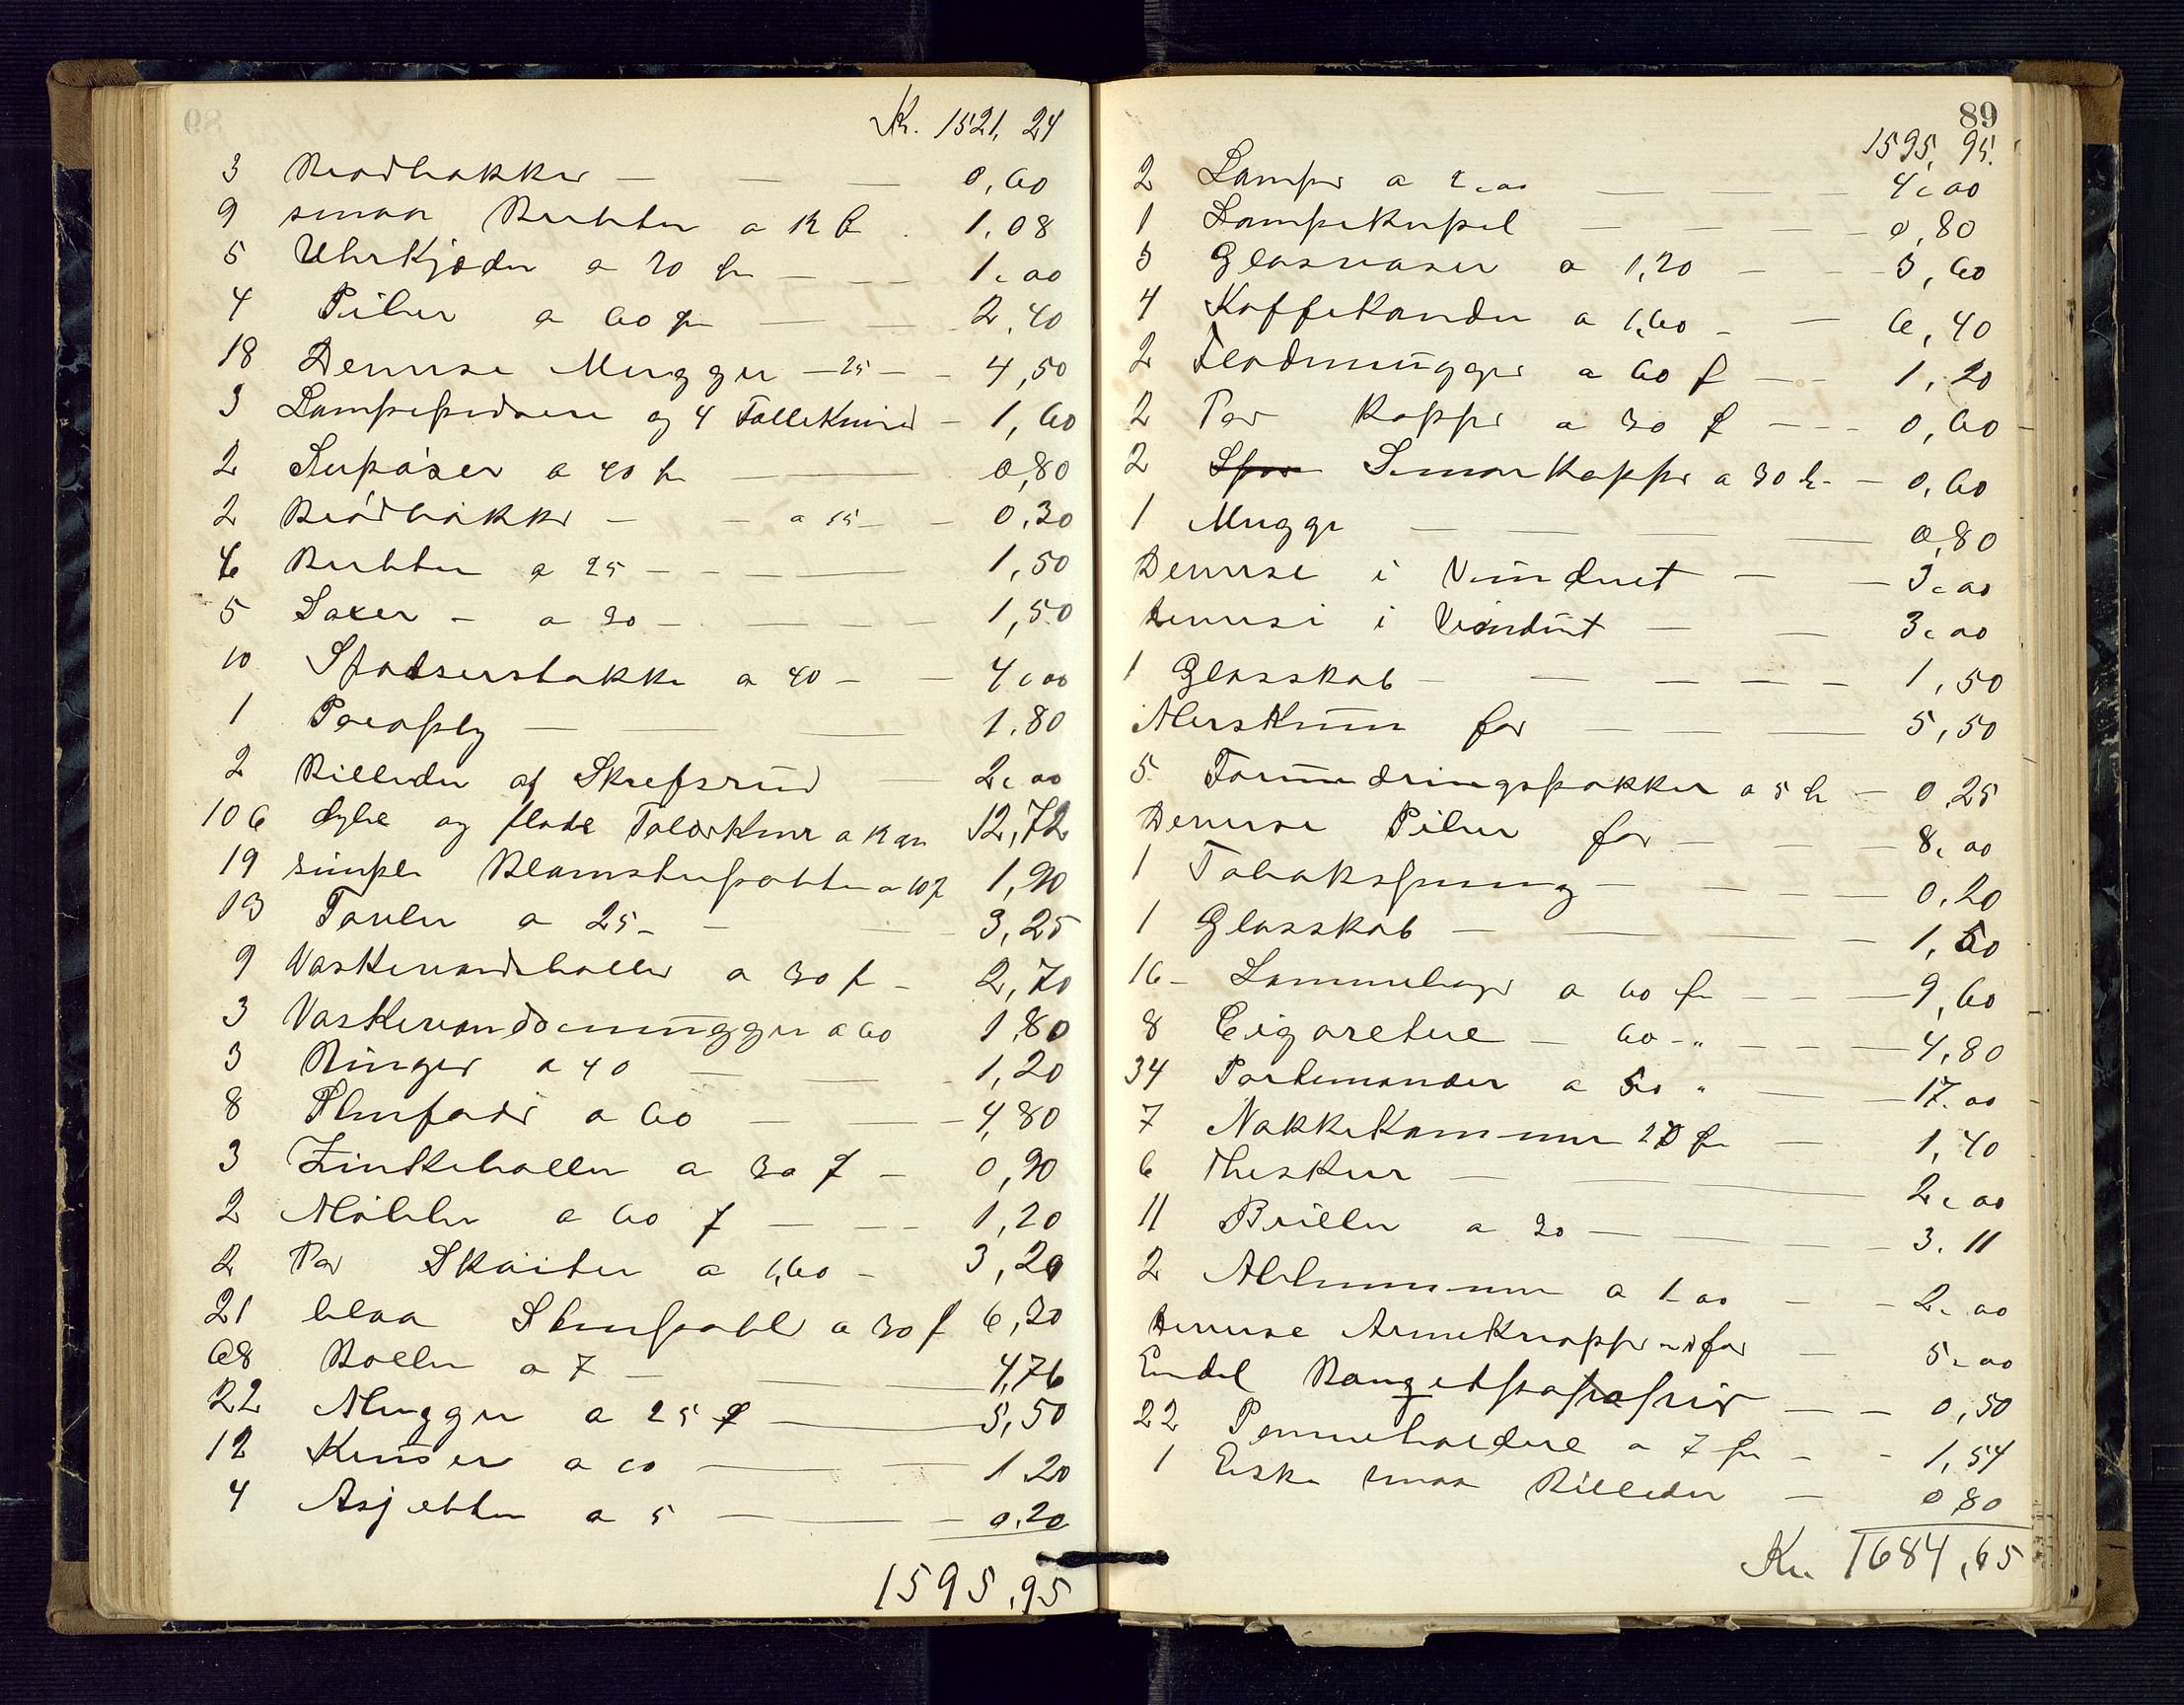 Kr. 1521,24
3 Brødbakker — — — 0,60
9 smaa Bøtter a 12 ø. 1.08
5 Uhrkjæder a 20 ør — — — 1.00
4 Piber a 60 ør — — 2.40
18 Deverse Mugger — 25 — — 4,50
3 Lampesparere og 4 Follekniver — 1,60
2 a 40 ør — 0,80
2 Brødbakker — — a 15 — — 0.30
6 Bøtter a 25 — — — 1,50
5 Saxer — a 30 — — — 1,50
10 Spadserstokke a 40 — — 4.00
1 Paraply — — — 1.80
2 Billeder af Skrefsrud — 2.00
106 dybe og flade Talerkner a 12 ør 12,72
19 simple Blomsterpotter a 10 ø 1,90
13 Tavler a 25 — — 3,25
9 Vaskevandsboller a 30 ø — 2,70
3 Vaskevandsmugger a 60 1.80
3 Ringer a 40 — — — 1,20
8 Stenfade a 60 — — 4,80
3 Zinkeboller a 30 ø — 0,90
2 a 60 ø — — — 1,20
2 Par Skøiter a 1,60 — 3,20
21 blaa a 30 ø 6,30
68 Boller a 7 — — 4,76
22 Mugger a 25 ø — 5,50
12 a 10 — 1.20
4 Asjetter a 5 — — — 0.20
1595,95
89
1595,95.
2 Lamper a 2.00 — — 4.00
1 Lampekupel — — — — 0,80
3 Glasvaser a 1,20 — — 3,60
4 Kaffekander a 1,60 — — 6,40
2 Flødmugger a 60 ø — — 1,20
2 Par Kopper a 30 ø — — — 0,60
2 Smaa Kopper a 30 ør — 0,60
1 Mugge — — — 0,80
Deverse i Vinduet — — 3.00
Deverse i Vinduet — — 3.00
1 Glasskab — — — — 1,50
Merskum for — — — 5,50
5 Forundringspakker a 5 ør — 0.25
Deverse Piber for — — — 8.00
1 Tobakspung — — — — 0,20
1 Glasskab — — — 1,50
16 — Lommebøger a 60 ør — — — 9,60
8 Cigaretue — 60 — " — — — 4,80
34 Portemonæer a 50 " — — 17.00
7 Nakkekammer 20 ør — 1,40
6 Theskeer — — 2.00
11 Briller a 30 — — — — 3.11
2 Albummer a 1.00 — — 2.00
Deverse Armeknapper for — 5.00
Endel — — 0,50
22 Penneholdere a 7 ør — — 1,54
1 Eske smaa Billeder — 0.80
Kr. 1684,65